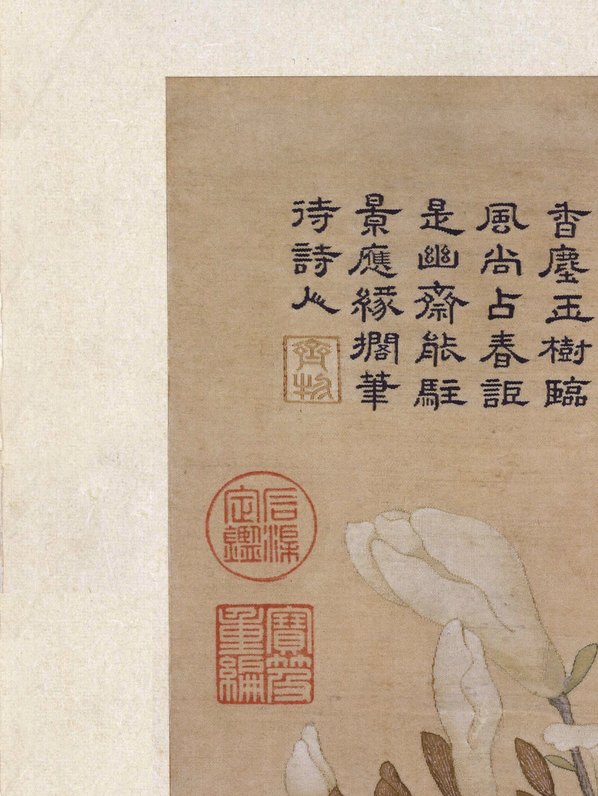 香塵玉樹臨
風尚占春詎
是幽齋能駐
景應緣擱筆
待詩人
齊物
石渠定鑑
寶笈重編